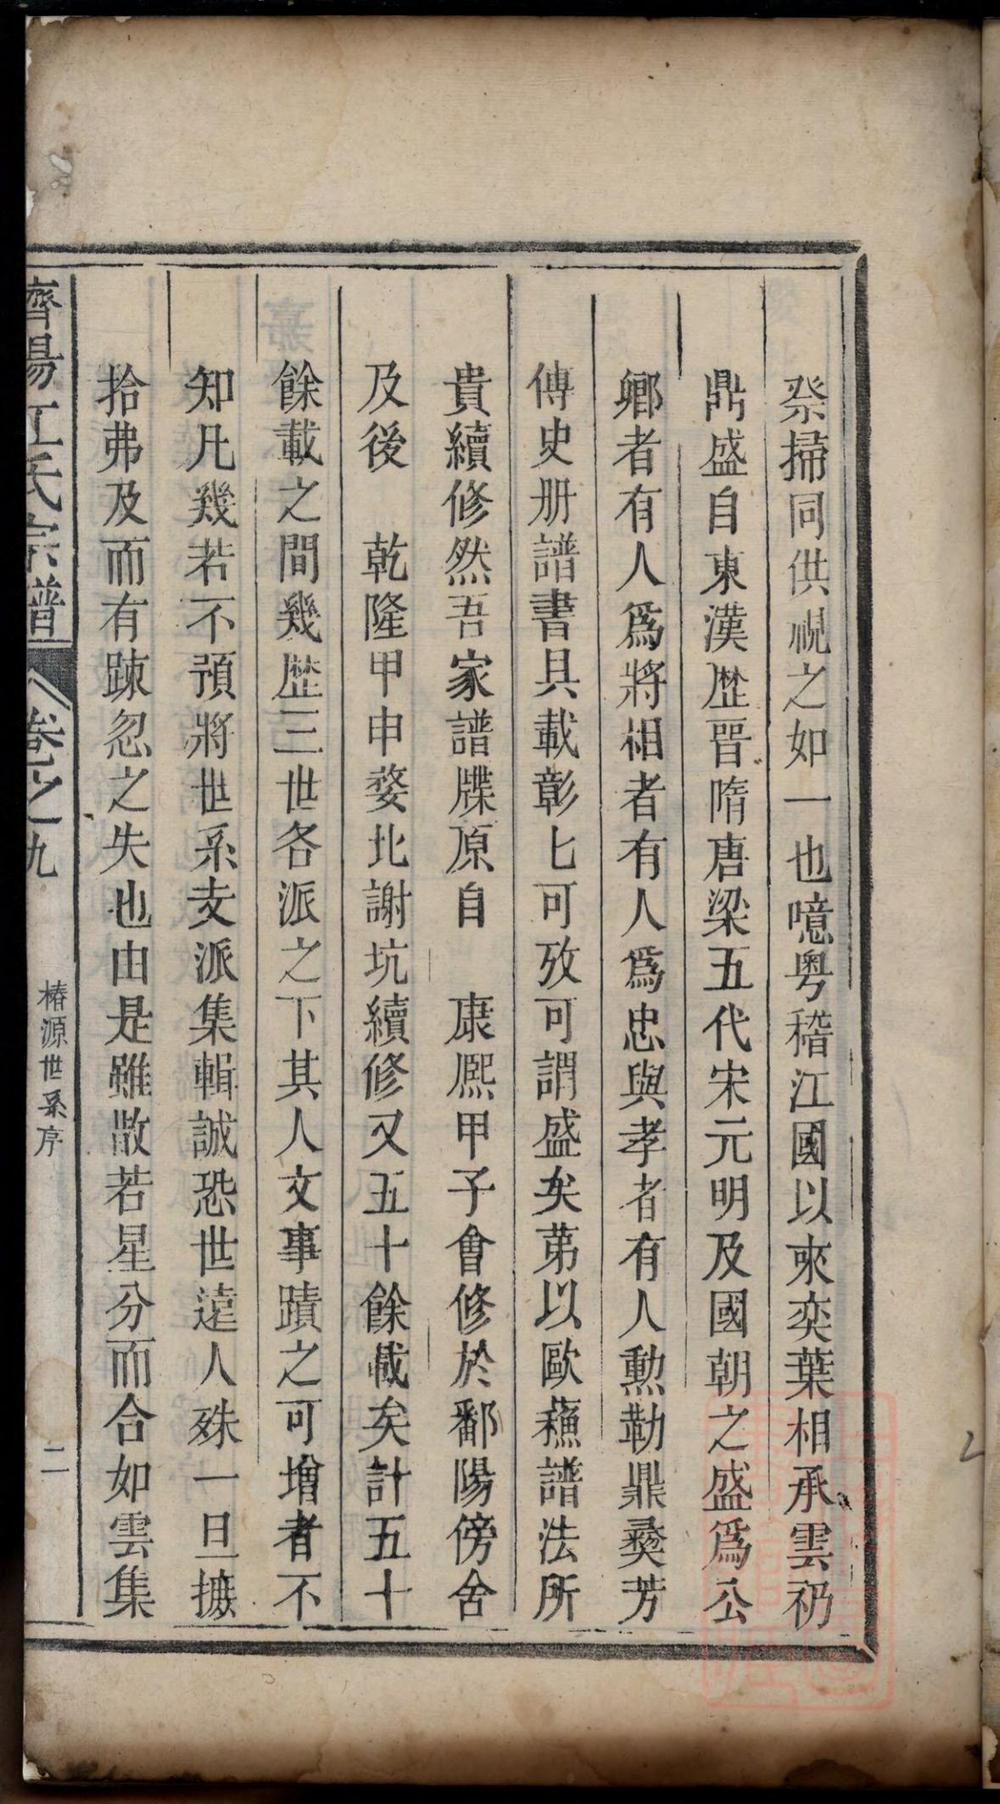 祭掃同供視之如一也噫粵稽江國以來奕葉相承雲礽
鼎盛自東漢歷晉隋唐梁五代宋元明及國朝之盛爲公
鄉者有人爲將相者有人爲忠與孝者有人勳勒鼎彜芳
傳史册譜書具載彰匕可攷可謂盛矣第以歐蘓譜法所
貴續修然吾家譜牒原自 康熈甲子會修於鄱陽傍舍
及後 乾隆甲申婺北謝坑續修又五十餘載矣計五十
餘載之間幾歴三世各派之下其人文事蹟之可增者不
知凡幾若不預將世系支派集輯誠恐世遠人殊一旦摭
拾弗及而有踈忽之失也由是雖散若星分而合如雲集
濟陽江氏宗譜 卷之九 椿源世系序 二